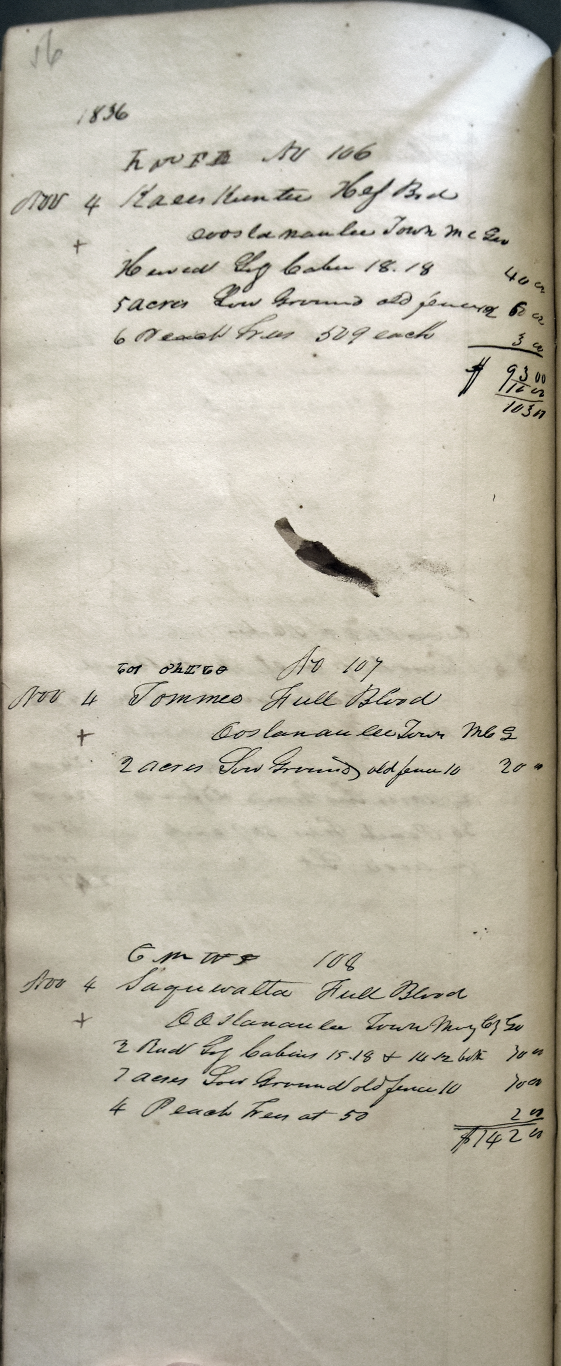 56
1836
No 106
Nov 4 Kaees Kuntee Half Brd
+ Oooslanaulee Town Mc Geo
Hewed Log Cabin 18.18 40 00
5 acres Low Ground old fence 50 00
6 Peach Trees 50¢ each 3 00
$ 93 00
10 00
103 00
No 107
Nov 4 Tommes Full Blood
+ Ooslanaulee Town McG
2 acres Low Ground old fence 10 20 "
108
Nov 4 Saquwalta Full Blood
+ OOslanaulee Town Mury Co Geo
2 Rud Log Cabins 15.18 & 14.12 both 70 00
7 acres Low Ground old fence 10 70 00
4 Peach Trees at 50 2 00
$142 00